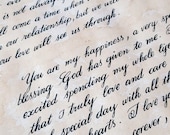 all come a time when
our relationship, but we
our love will see us through.
"You are my happiness, a very spe
blessing God has given to me. I
excited spending my whole life
that I truly love and care
special day with all th
hearts. I love yo
forever